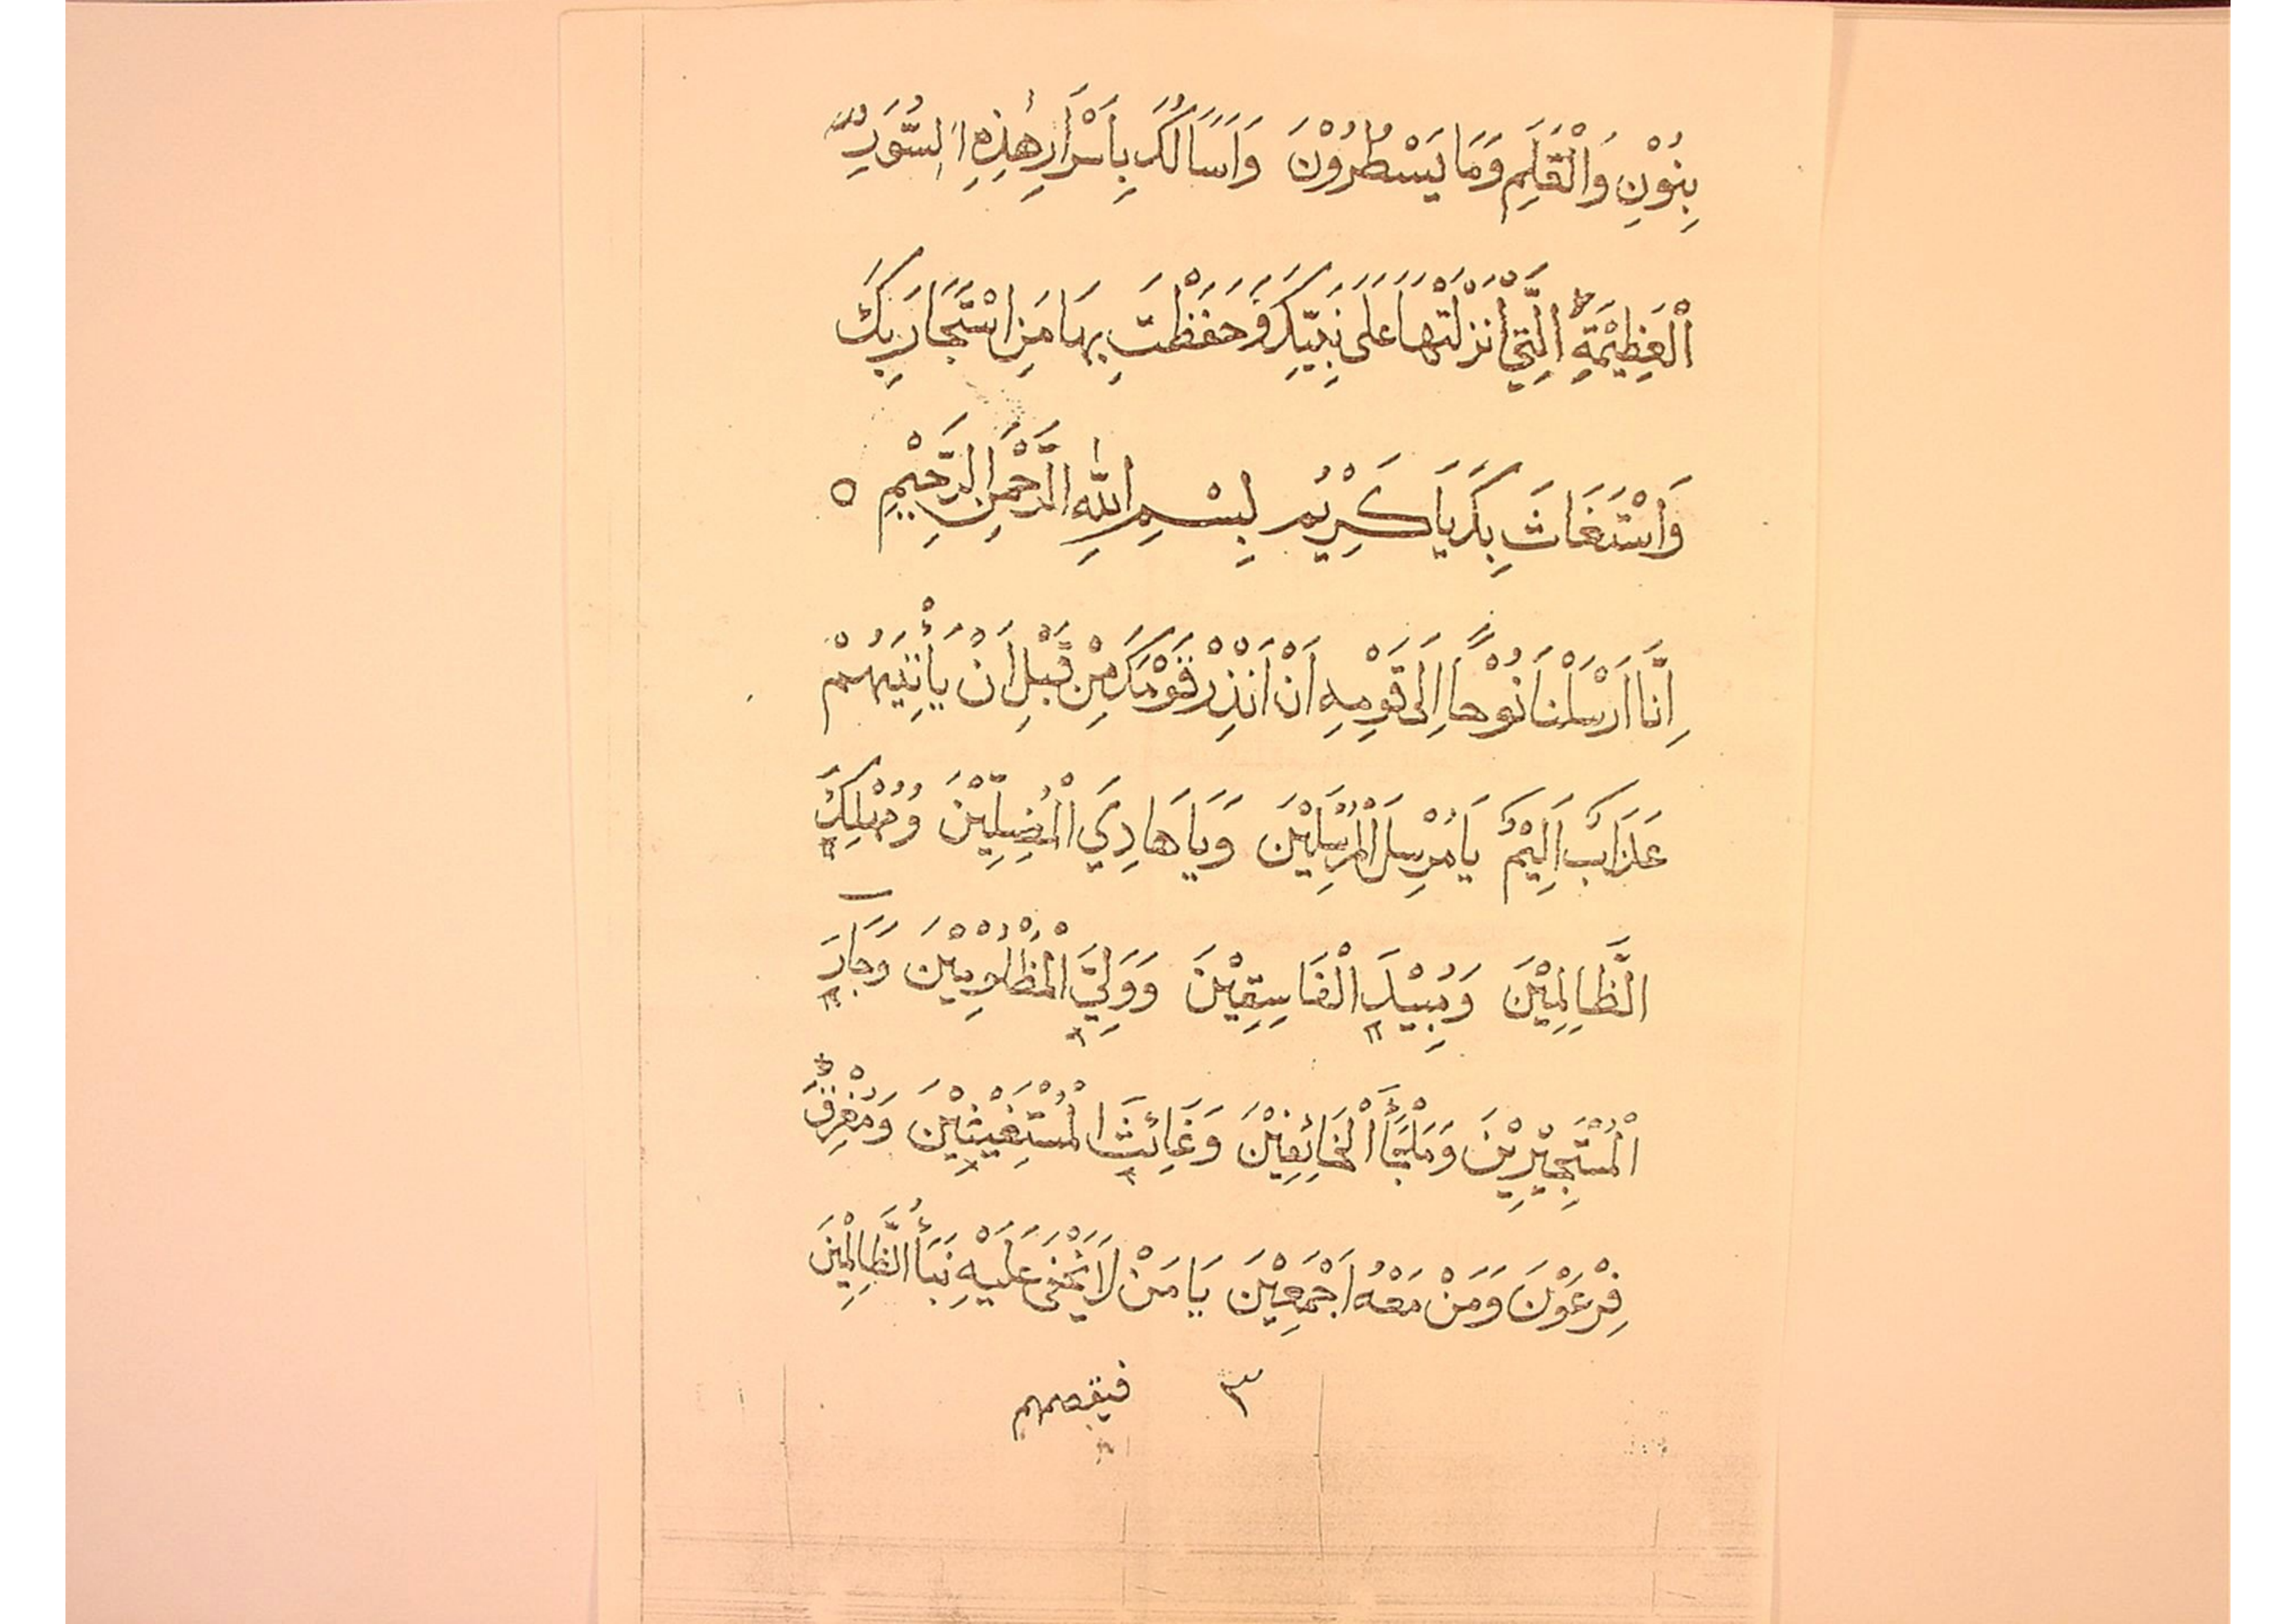 بِنُوْنِ وَالْقَلَمِ وَمَا يَسْطُرُوْنَ وَاَسَالُكَ بِاَسْرَارِ هٰذِهِ السُّوَرِ
الْعَظِيْمَةِ الَّتِيْ اَنْزَلْتَهَا عَلَى نَبِيِّكَ وَحَفَظْتَ بِهَا مَنِ اسْتَجَارَ بِكَ
وَاسْتَغَاثَ بِكَ يَا كَرِيْمُ بِسْمِ اللّٰهِ الرَّحْمٰنِ الرَّحِيْمِ ٥
اِنَّا اَرْسَلْنَا نُوْحًا اِلَى قَوْمِهِ اَنْ اَنْذِرْ قَوْمَكَ مِنْ قَبْلِ اَنْ يَأْتِيَهُمْ
عَذَابٌ اَلِيْمٌ يَا مُرْسِلَ الْمُرْسَلِيْنَ وَيَا هَادِيَ الْمُضِلِّيْنَ وَمُهْلِكَ
الظَّالِمِيْنَ وَمُبِيْدَ الْفَاسِقِيْنَ وَوَلِيَّ الْمَظْلُوْمِيْنَ وَجَارَ
الْمُسْتَجِيْرِيْنَ وَمَلْجَأَ الْخَائِفِيْنَ وَغَائِثَ الْمُسْتَغِيْثِيْنَ وَمُغْرِقَ
فِرْعَوْنَ وَمَنْ مَعَهُ اَجْمَعِيْنَ يَا مَنْ لَا يَخْفَى عَلَيْهِ نَبَأُ الظَّالِمِيْنَ
٣ فيقصمهم